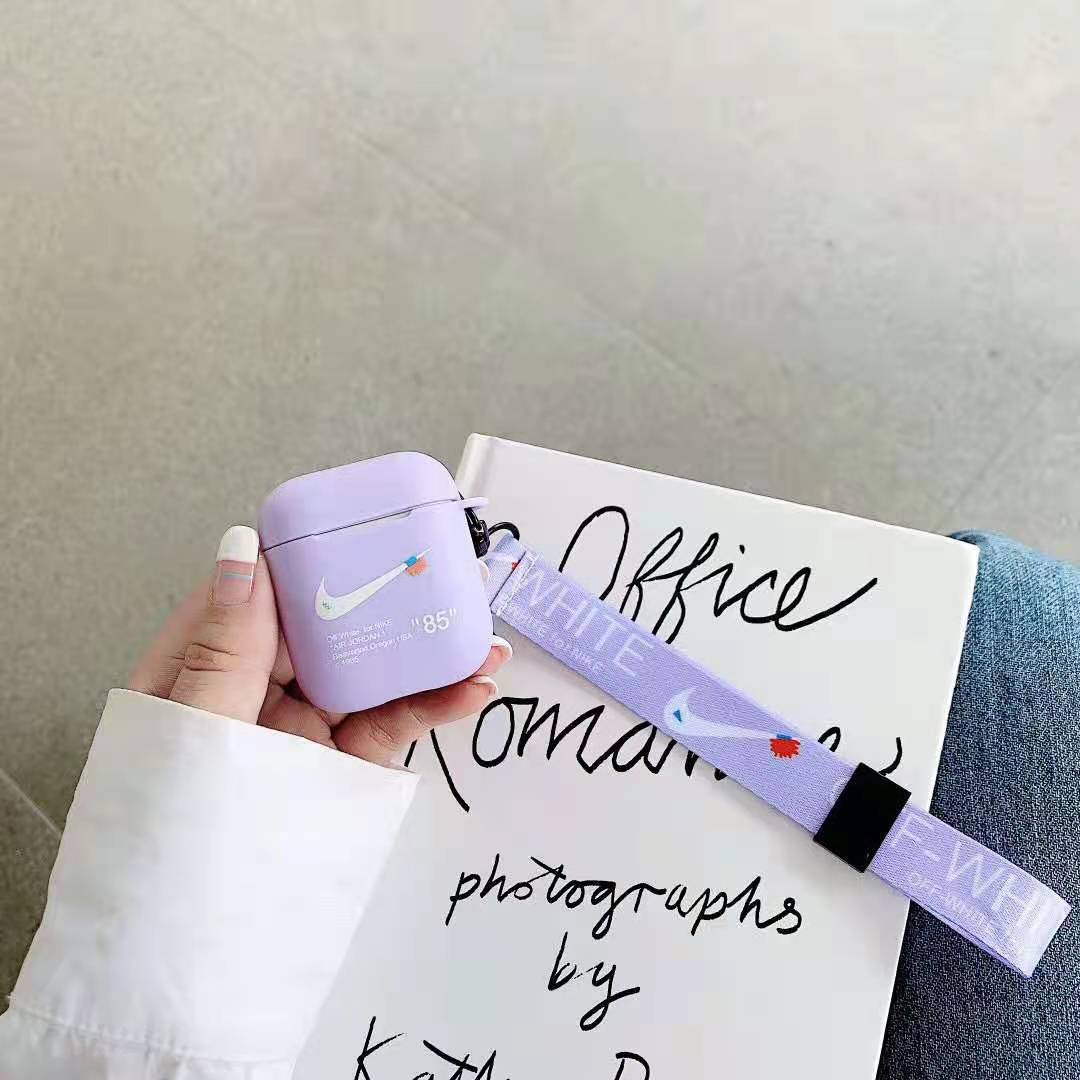 Off White for NIKE
"AIR JORDAN 1"
Beaverton, Oregon, USA
© 1985
"85"
Office
Romance
photographs
by
WHITE
WHITE for NIKE
F-WHI
OFF-WHITE